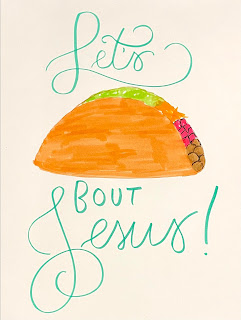 Let's
BOUT
Jesus!